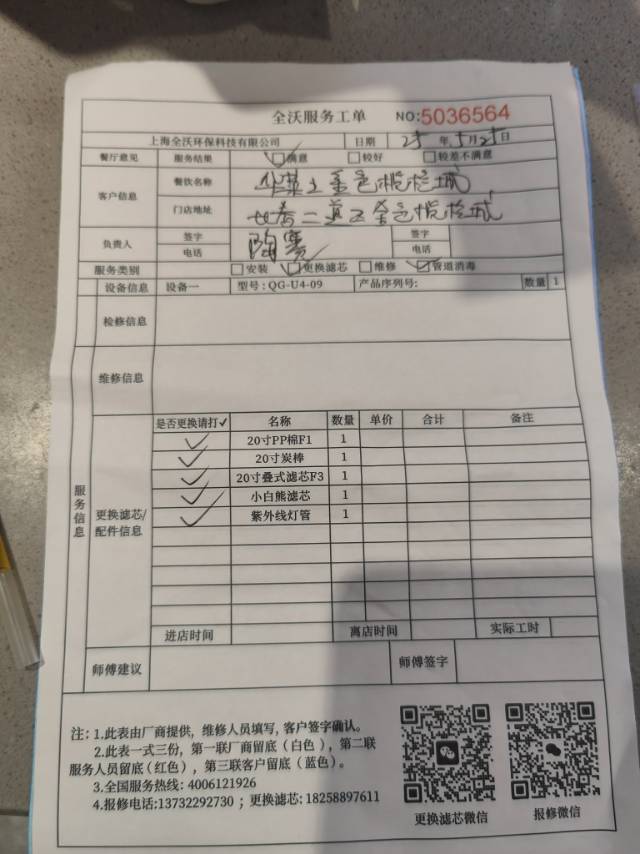 全沃服务工单 NO:5036564
上海全沃环保科技有限公司 日期 25 年 5月25日
餐厅意见 服务结果 ☑满意 □较好 □较差不满意
客户信息 餐饮名称 金色橄榄城
门店地址 二道 金色橄榄城
负责人 签字 电话 签字 电话
服务类别 □安装 ☑更换滤芯 □维修 ☑管道消毒
设备信息 设备一 型号:QG-U4-09 产品序列号: 数量 1
检修信息
维修信息
服务信息
更换滤芯/配件信息
是否更换请打✓ 名称 数量 单价 合计 备注
✓ 20寸PP棉F1 1
✓ 20寸炭棒 1
✓ 20寸叠式滤芯F3 1
✓ 小白熊滤芯 1
✓ 紫外线灯管 1
进店时间 离店时间 实际工时
师傅建议 师傅签字
注:1.此表由厂商提供，维修人员填写,客户签字确认。
2.此表一式三份，第一联厂商留底（白色），第二联
服务人员留底(红色)，第三联客户留底（蓝色）。
3.全国服务热线: 4006121926
4.报修电话:13732292730 ；更换滤芯: 18258897611
更换滤芯微信 报修微信